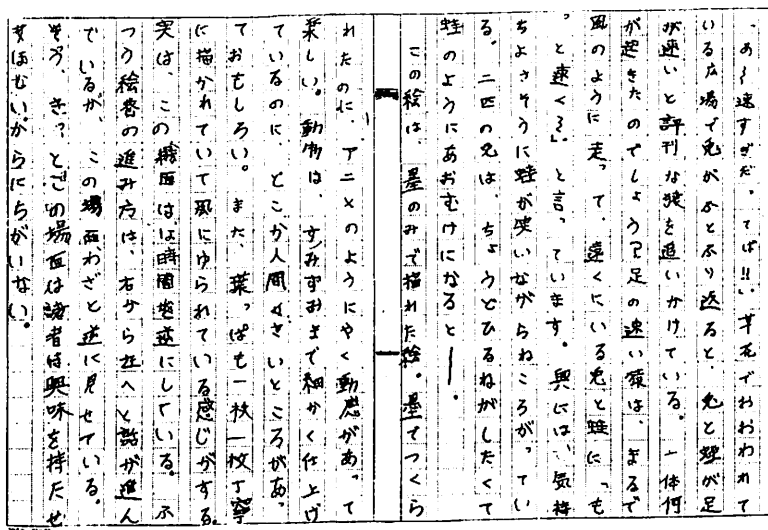 「あ〜速すぎだ。てば!!」草花でおおわれて
いる広場で兎がふとふり返ると、兎と蛙が足
が速いと評判な猿を追いかけている。一体何
が起きたのでしょう?足の速い猿は、まるで
風のように走って、遠くにいる兎と蛙に「も
っと速く〜」と言っています。奥には、気持
ちよさそうに蛙が笑いながらねころがってい
る。二匹の兎は、ちょうどひるねがしたくて
蛙のようにあおむけになると―。
この絵は、墨のみで描れた絵。墨でつくら
れたのに、アニメのようにやく動感があって
楽しい。動物は、すみずみまで細かく仕上げ
ているのに、どこか人間くさいところがあっ
ておもしろい。また、葉っぱも一枚一枚丁寧
に描かれていて風にゆられている感じがする。
実は、この場面はは時間を逆にしている。ふ
つう絵巻の進み方は、右から左へと話が進ん
でいるが、この場面わざと逆に見せている。
そう、きっとこの場面は読者は興味を持たせ
たいからにちがいない。